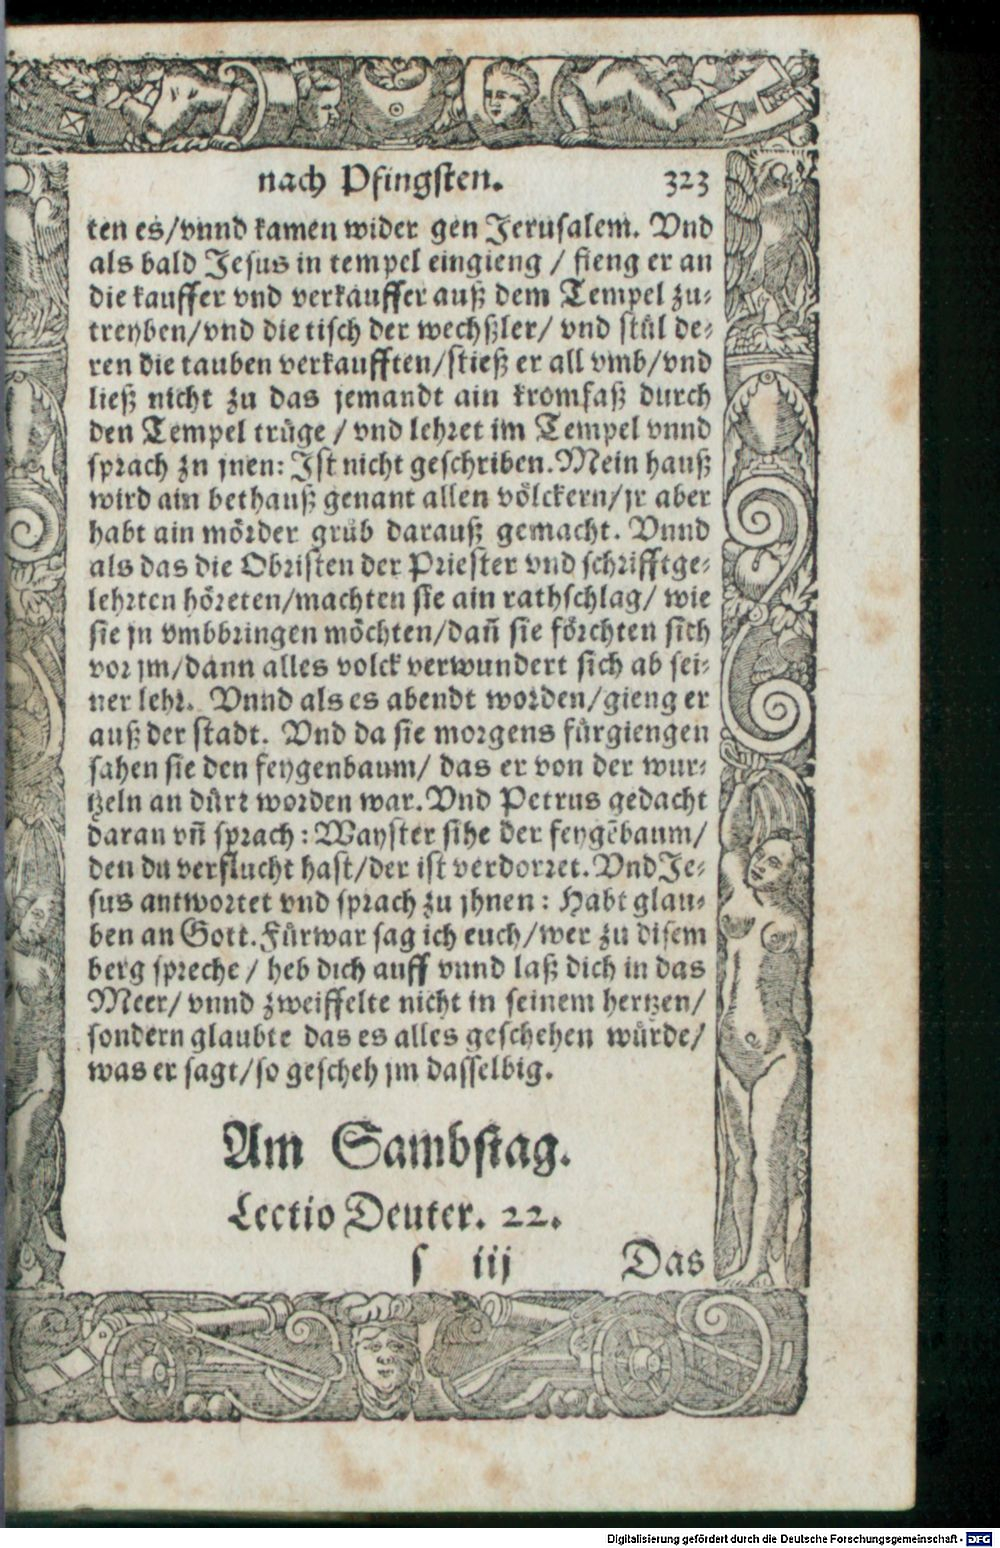 nach Pfingsten. 323
ten es/vnnd kamen wider gen Jerusalem. Vnd
als bald Jesus in tempel eingieng / fieng er an
die kauffer vnd verkauffer auß dem Tempel zu-
treyben/vnd die tisch der wechßler/ vnd stůl de-
ren die tauben verkaufften/stieß er all vmb/vnd
ließ nicht zu das jemandt ain kromfaß durch
den Tempel trůge / vnd lehret im Tempel vnnd
sprach zu jnen: Ist nicht geschriben. Mein hauß
wird ain bethauß genant allen völckern/jr aber
habt ain mörder grůb darauß gemacht. Vnnd
als das die Obristen der Priester vnd schrifftge-
lehrten höreten/machten sie ain rathschlag/ wie
sie jn vmbbringen möchten/dañ sie förchten sich
vor jm/dann alles volck verwundert sich ab sei-
ner lehr. Vnnd als es abendt worden/gieng er
auß der stadt. Vnd da sie morgens fürgiengen
sahen sie den feygenbaum/ das er von der wur-
tzeln an dürr worden war. Vnd Petrus gedacht
daran vñ sprach: Mayster sihe der feygēbaum/
den du verflucht hast/der ist verdorret. Vnd Je-
sus antwortet vnd sprach zu jhnen: Habt glau-
ben an Gott. Fürwar sag ich euch/wer zu disem
berg spreche / heb dich auff vnnd laß dich in das
Meer/ vnnd zweiffelte nicht in seinem hertzen/
sondern glaubte das es alles geschehen würde/
was er sagt/so gescheh jm dasselbig.
Am Sambstag.
Lectio Deuter. 22.
s iij Das
Digitalisierung gefördert durch die Deutsche Forschungsgemeinschaft - DFG